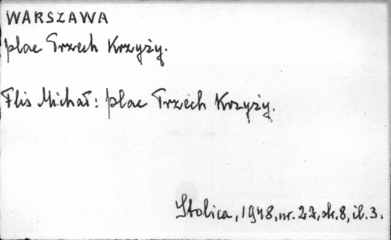 WARSZAWA
plac Trzech Krzyży.
Flis Michał: plac Trzech Krzyży.
Stolica, 1948, nr. 27, str. 8, il. 3.